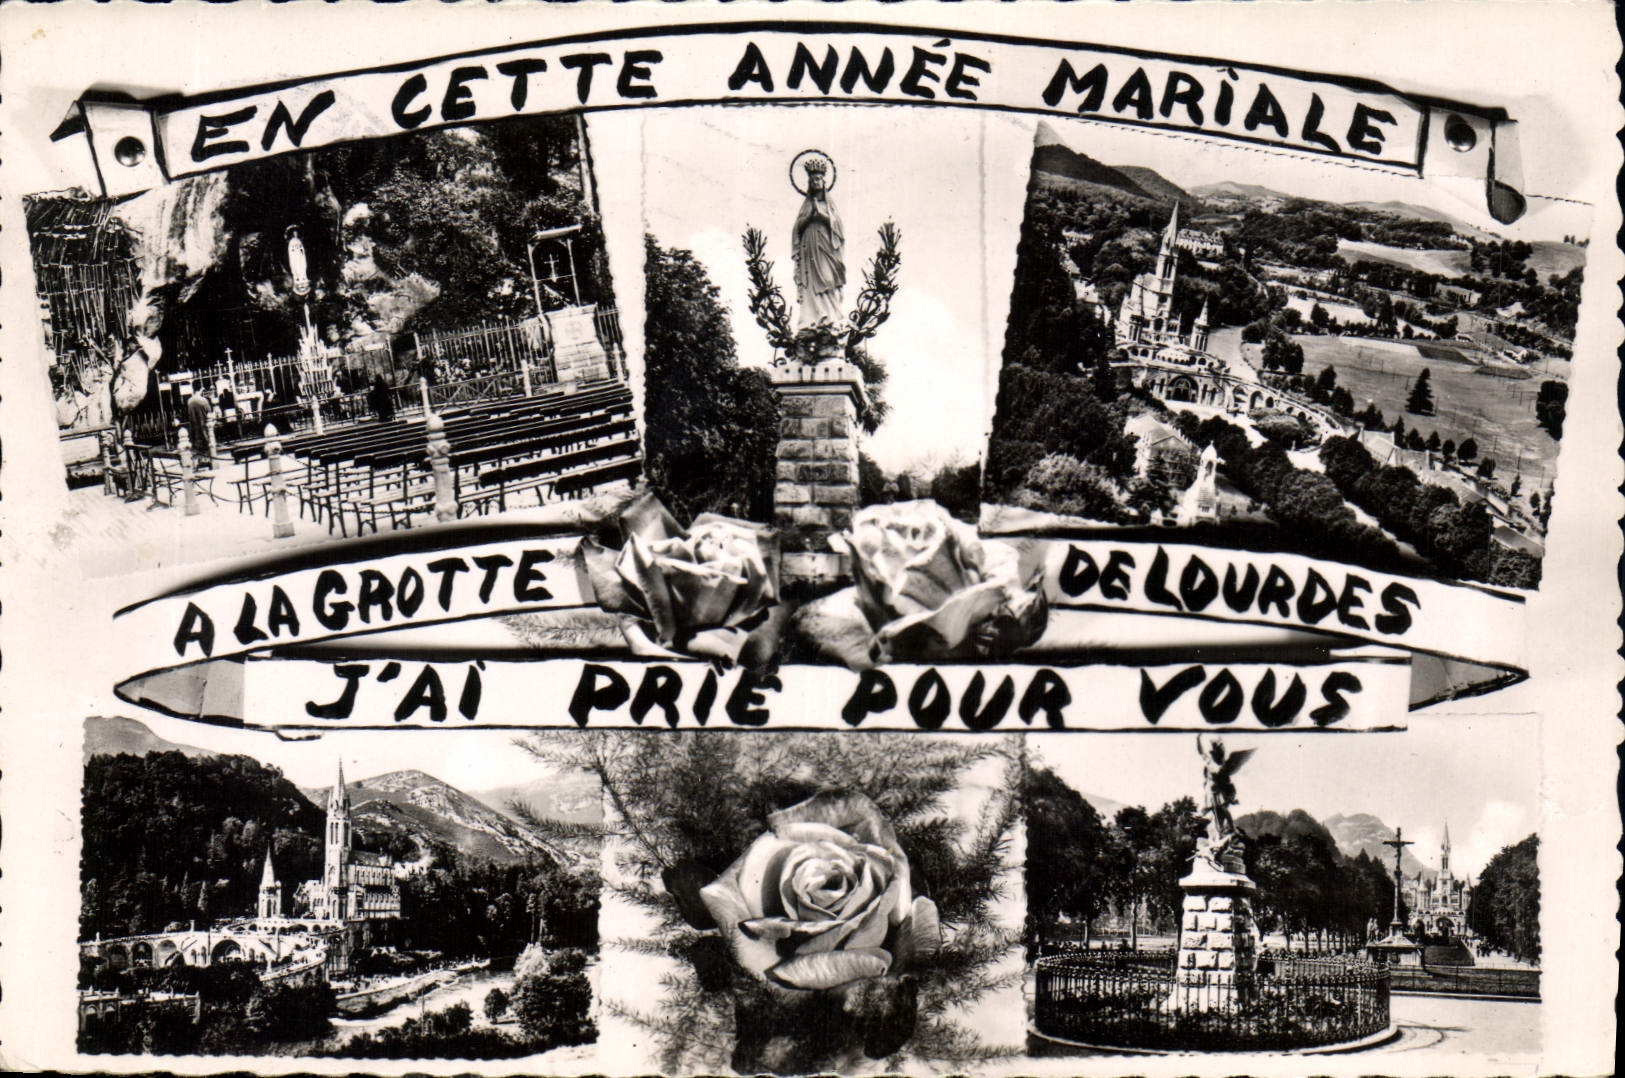 EN CETTE ANNÉE MARIALE
A LA GROTTE DE LOURDES
J'AI PRIÉ POUR VOUS